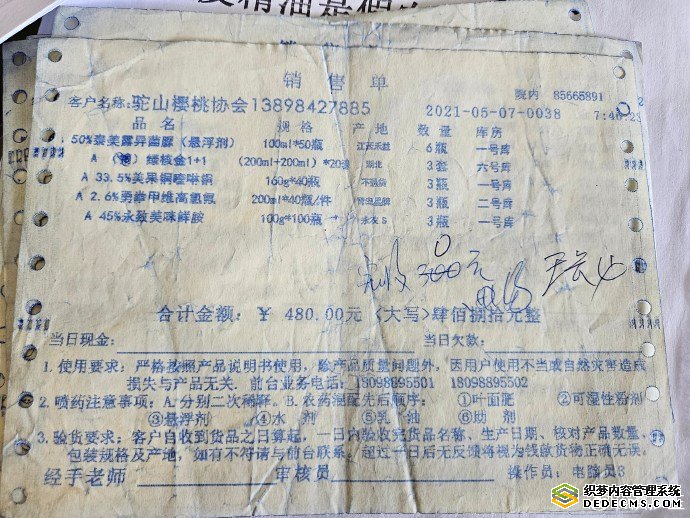 销售单
院内 85665891
客户名称: 驼山樱桃协会13898427885 2021-05-07-0038
品名 规格 产地 数量 库房
50%泰美露异菌脲（悬浮剂） 100ml*50瓶 6瓶 一号库
1+1 (200ml+200ml) *20 湖北 3套 六号库
A 33.5%美果铜喹啉铜 160g*40瓶 3瓶 一号库
A 2.6%勇 甲维高氯氟 200ml*40瓶/件 3瓶 二号库
A 45%永致美咪鲜胺 100g*100瓶 永农S 3瓶 一号库
合计金额: ￥ 480.00元 (大写)肆佰捌拾元整
当日现金: 当日欠款:
1. 使用要求: 严格按照产品说明书使用，除产品质量问题外，因用户使用不当或自然灾害造成
损失与产品无关。前台业务电话: 18098895501 18098895502
2. 喷药注意事项: A.分别二次稀释。B.农药混配先后顺序: ①叶面肥 ②可湿性粉剂
③悬浮剂 ④水剂 ⑤乳油 ⑥助剂
3. 验货要求: 客户自收到货品之日算起，一日内验收完货品名称、生产日期、核对产品数量、
包装规格及产地，如有不符请与前台联系。超过一日后无反馈将视为钱款货物正确无误。
经手老师 审核员 操作员: 电脑员8
织梦内容管理系统
DEDECMS.COM